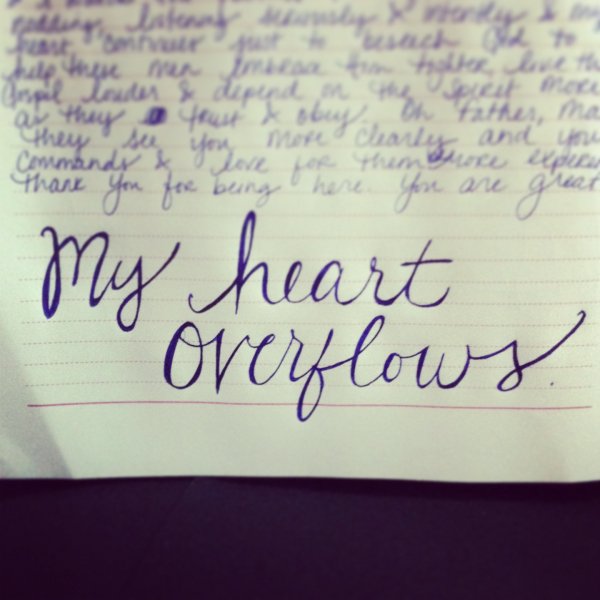 nodding, listening seriously & intently & my
heart continues just to beseech God to
help these men embrace Him tighter, love the
Gospel louder & depend on the Spirit more
as they trust & obey. Oh Father, may
they see you more clearly and your
commands & love for them more experien
Thank You for being here. You are great
My heart
overflows.